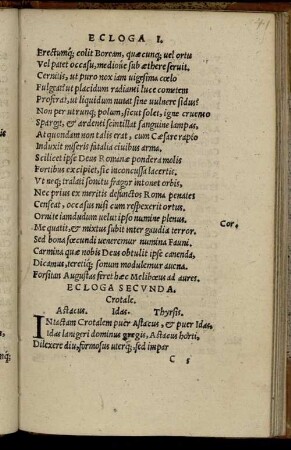 ECLOGA I.
Erectumq; colit Boream, quæcunq; vel ortu
Vel patet occasu, medioúe sub æthere seruit.
Cernitis, ut puro nox iam uigesima cœlo
Fulgeat ut placidum radianti luce cometem
Proferat, ut liquidum nutat sine uulnere sidus?
Non per utrunq; polum, sicut solet, igne cruento
Spargit, & ardenti scintillat sanguine lampas,
At quondam non talis erat, cum Cæsare rapto
Induxit miseris fatalia ciuibus arma.
Scilicet ipse Deus Romanæ pondera molis
Fortibus excipiet, sic inconcussa lacertis.
Vt neq; tralati sonitu fragor intonet orbis,
Nec prius ex meritis defunctos Roma penates
Censeat, occasus nisi cum respexerit ortus.
Ornite iamdudum uelut ipso numine plenus. Cor.
Me quatit, & mixtus subit inter gaudia terror.
Sed bona fœcundi ueneremur numina Fauni.
Carmina quæ nobis Deus obtulit ipse canenda,
Dicamus, teretiq; sonum modulemur auena.
Forsitan Augustas feret hæc Melibœus ad aures.
ECLOGA SECVNDA.
Crotale.
Astacus. Idas. Thyrsis.
INtactam Crotalem puer Astacus, & puer Idas,
Idas lanigeri dominus gregis, Astacus horti,
Dilexere diu, formosus uterq; sed impar
C 5